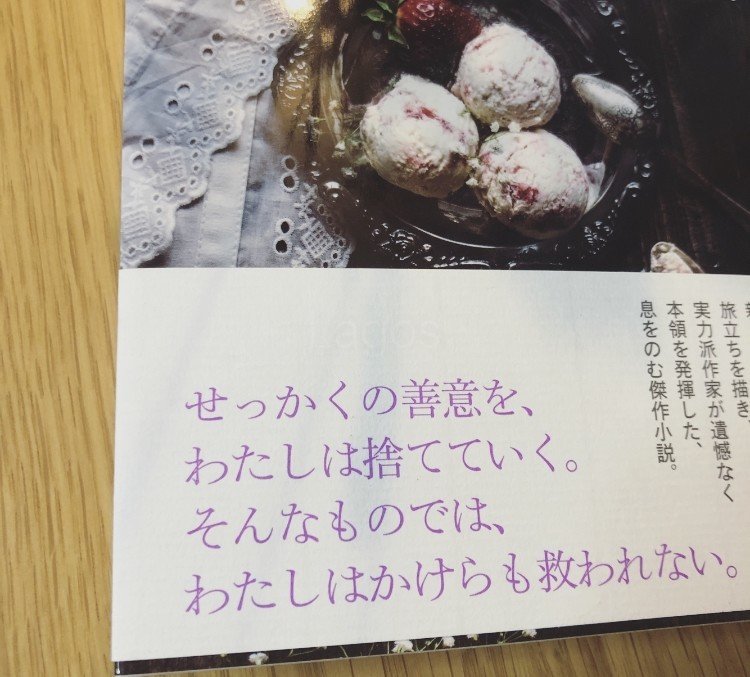 せっかくの善意を、
わたしは捨てていく。
そんなものでは、
わたしはかけらも救われない。
旅立ちを描き、
実力派作家が遺憾なく
本領を発揮した、
息をのむ傑作小説。